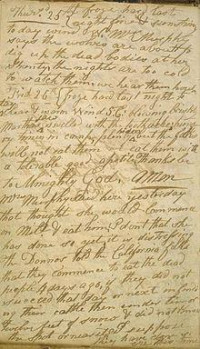 Thurs. 25th
today wind W. Mrs Murphy
says the wolves are about to
dig up the dead bodies at her
Shanty, the nights are too cold
to watch them, we hear them howl
Frid 26th froze hard last night
clear & warm Wind S.E. blowing briskly
Martha's jaw swelled with the toothache
hungry times in camp, plenty hides but the folks
will not eat them we eat them with
a tolerable good apetite. Thanks be
to Almighty God. Amen
Mrs Murphy said here yesterday
that thought she would commence
on Milt & eat him. I dont that she
has done so yet, it is distressing
The Donnos told the California folks
that they commence to eat the dead
people 4 days ago, if they did not
succeed that day or next in finding
their cattle then under ten or
twelve feet of snow & did not know
the spot or near it, I suppose
they have